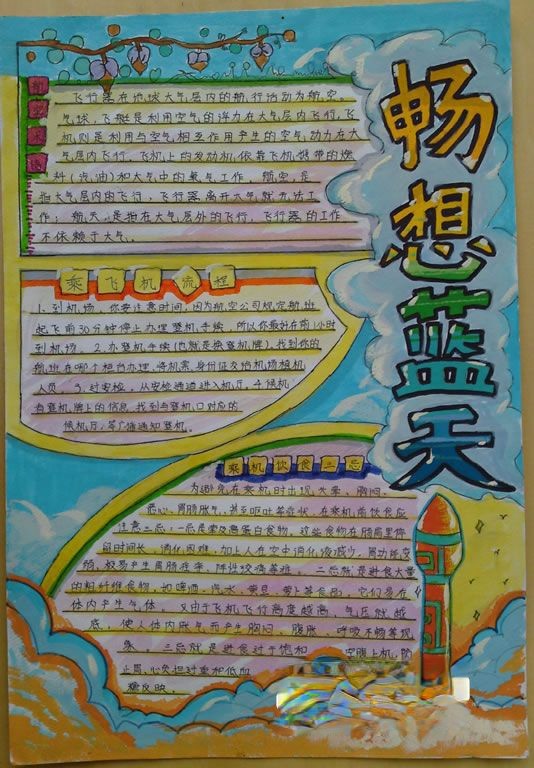 畅想蓝天
飞行器在地球大气层内的航行活动为航空。
气球、飞艇是利用空气的浮力在大气层内飞行,飞
机则是利用与空气相互作用产生的空气动力在大
气层内飞行。飞机上的发动机依靠飞机携带的燃
料(汽油)和大气中的氧气工作。航空,是
指大气层内的飞行,飞行器离开大气就无法工
作;航天,是指在大气层外的飞行,飞行器的工作
不依赖于大气。
乘飞机流程
1.到机场。你要注意时间,因为航空公司规定航班
起飞前30分钟停止办理登机手续,所以你最好在前1小时
到机场。2.办登机手续(也就是换登机牌)。找到你的
航班在哪个柜台办理,将机票、身份证交给机场值机
人员。3.过安检。从安检通道进入机厅。4.候机
有登机牌上的信息,找到与登机口对应的
候机厅,等广播通知登机。
乘机饮食三忌
为避免在乘机时出现头晕、胸闷、
恶心、胃肠胀气,甚至呕吐等症状,在乘机前饮食应
注意三忌:一忌是荤及高蛋白食物。这些食物在肠胃里停
留时间长,消化困难,加上人在空中消化液减少,胃功能变
弱,极易产生胃肠胀痛、阵性绞痛等难。二忌就是进食大量
的粗纤维食物,如啤酒、汽水、黄豆、萝卜等食品,它们易在
体内产生气体。又由于飞机飞行高度越高,气压就越
底,使人体内胀气而产生胸闷、腹胀、呼吸不畅等现
象。三忌就是进食过于饱和
空腹上机,防
止胃、心负担过重和低血
糖反映。